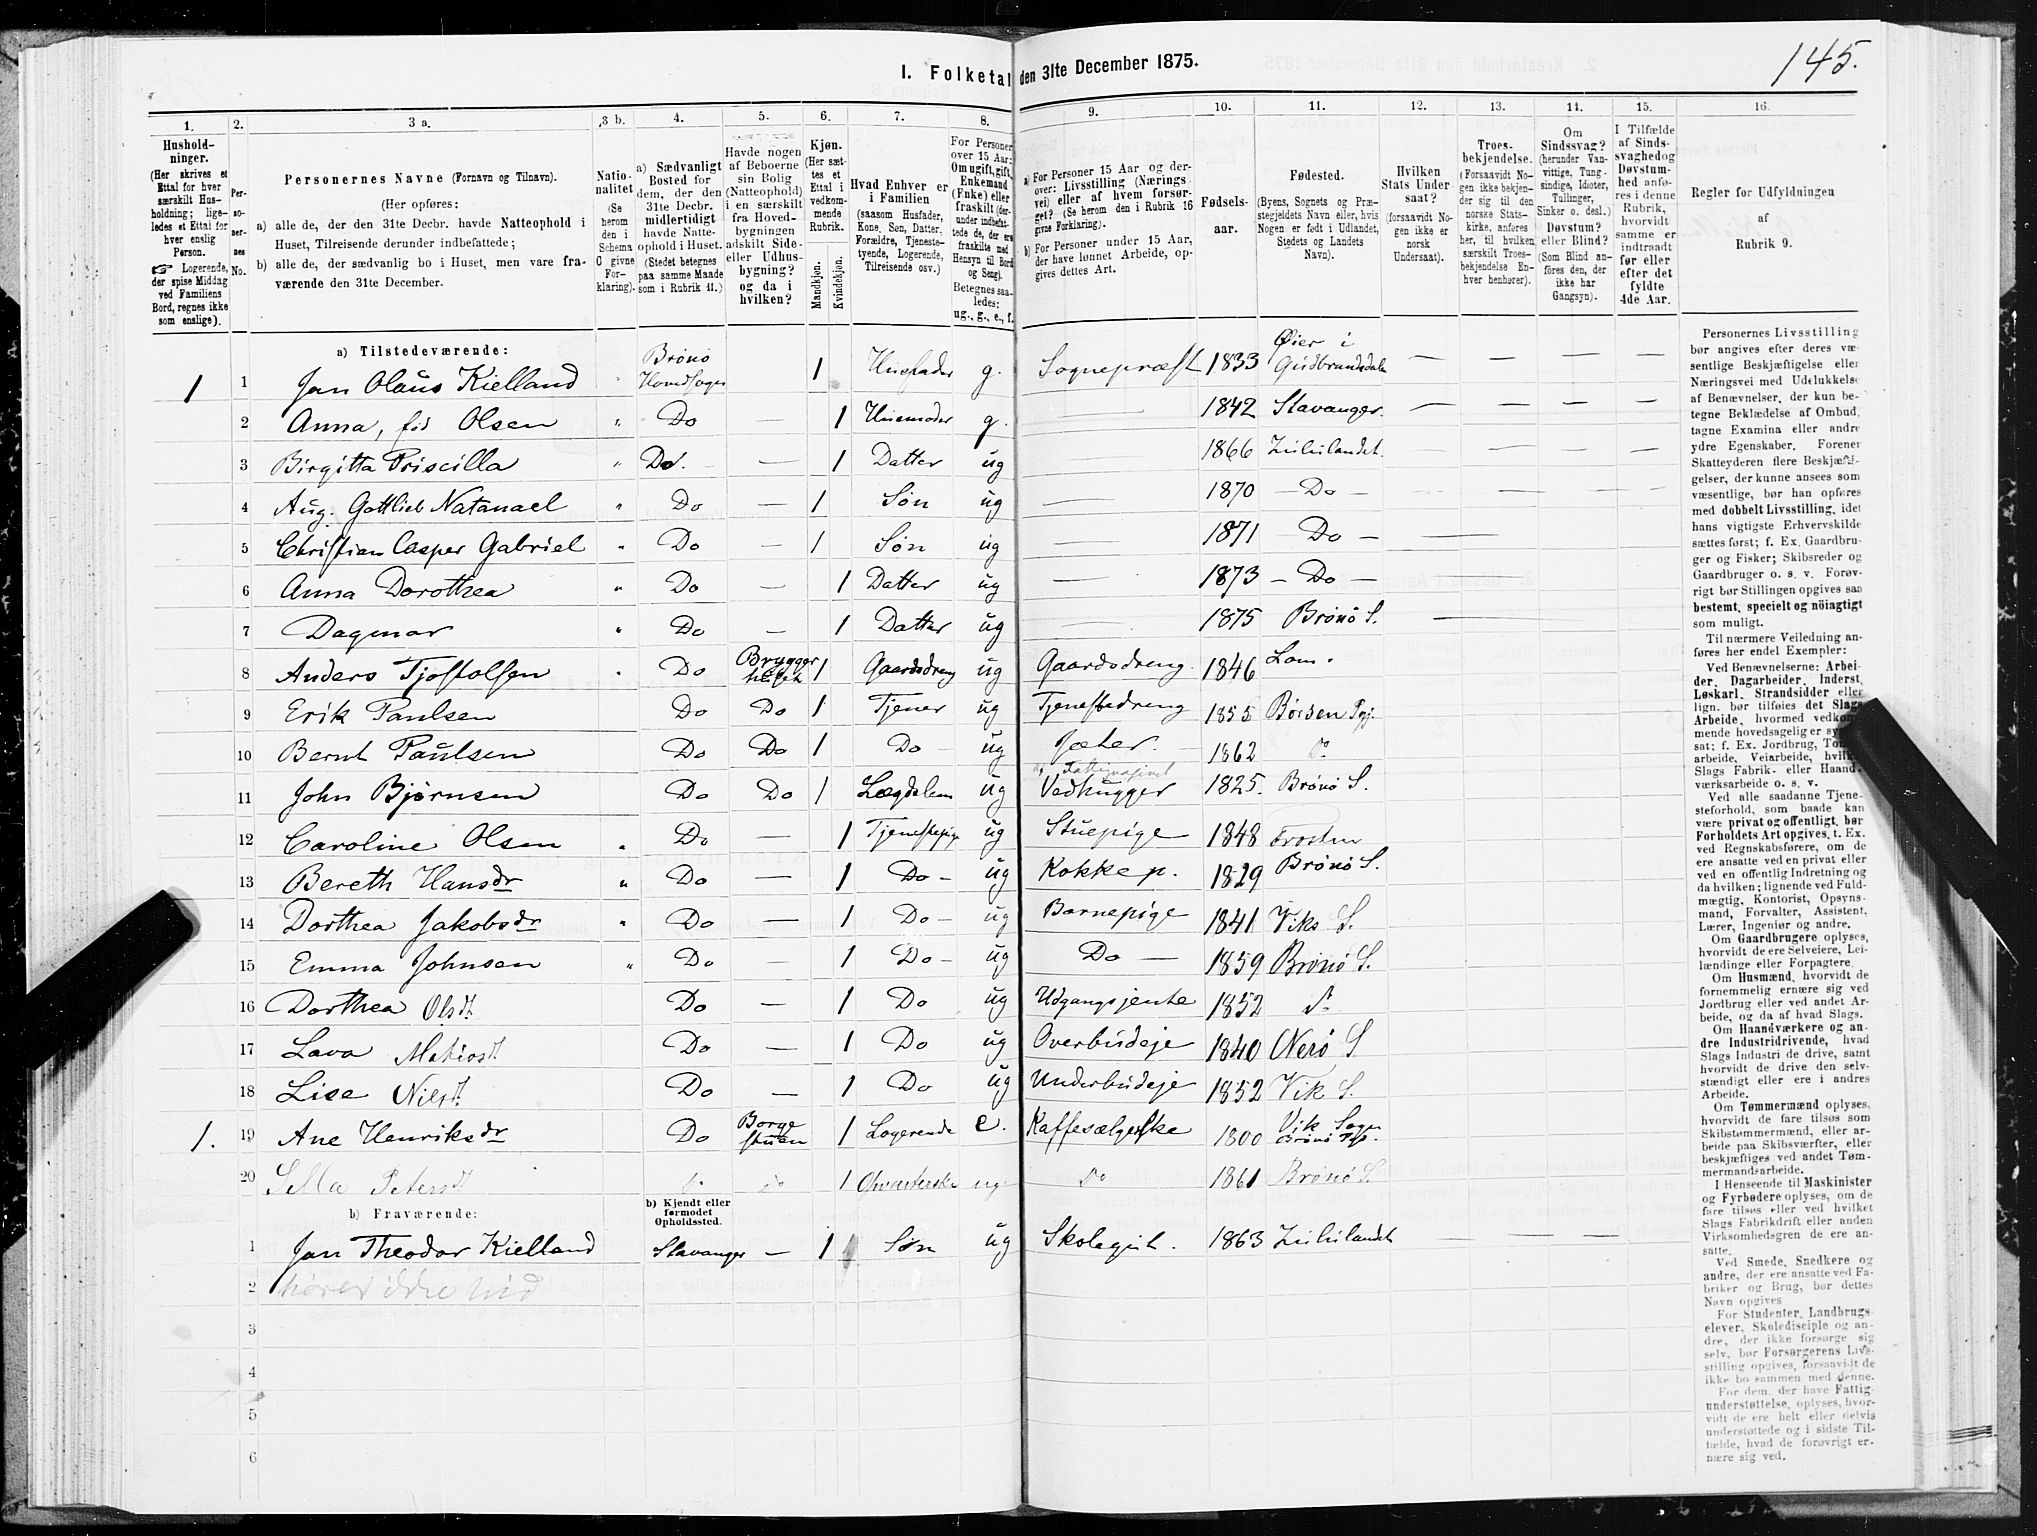 145.
I. Folketal den 31te December 1875.
1. 2. 3 a. 3 b. 4. 5. 6. 7. 8. 9. 10. 11. 12. 13. 14. 15. 16.
Husholdninger. (Her skrives et Ettal for hver særskilt Husholdning; ligeledes et Ettal for hver enslig Person. ☞ Logerende, der spise Middag ved Familiens Bord, regnes ikke som enslige).
Personernes No.
Personernes Navne (Fornavn og Tilnavn).
(Her opføres:
a) alle de, der den 31te Decbr. havde Natteophold i Huset, Tilreisende derunder indbefattede;
b) alle de, der sædvanlig bo i Huset, men vare fraværende den 31te December.
Nationalitet (Se herom den i Schema C givne Forklaring).
a) Sædvanligt Bosted for dem, der den 31te Decbr. midlertidigt havde Natteophold i Huset. (Stedet betegnes paa samme Maade som i Rubrik 11.)
Havde nogen af Beboerne sin Bolig (Natteophold) i en særskilt fra Hovedbygningen adskilt Side- eller Udhusbygning? og da i hvilken?
Kjøn. (Her sættes et Ettal i vedkommende Rubrik. Mandkjøn. Kvindekjøn.
Hvad Enhver er i Familien (saasom Husfader, Kone, Søn, Datter, Forældre, Tjenestetyende, Logerende, Tilreisende osv.)
For Personer over 15 Aar: Om ugift, gift, Enkemand (Enke) eller fraskilt (derunder indbefattede de, der ere fraskilte med Hensyn til Bord og Seng). Betegnes saaledes: ug., g., e., f.
a) For Personer 15 Aar og derover: Livsstilling (Næringsvei) eller af hvem forsørget? (Se herom den i Rubrik 16 givne Forklaring).
b) For Personer under 15 Aar, der have lønnet Arbeide, opgives dettes Art.
Fødselsaar.
Fødested. (Byens, Sognets og Præstegjeldets Navn eller, hvis Nogen er født i Udlandet, Stedets og Landets Navn).
Hvilken Stats Undersaat? (forsaavidt Nogen ikke er norsk Undersaat).
Troesbekjendelse. (Forsaavidt Nogen ikke bekjender sig til den norske Statskirke, anføres her, til hvilken særskilt Troesbekjendelse Enhver henhører).
Om Sindssvag? (herunder Vanvittige, Tungsindige, Idioter, Tullinger, Sinker o. desl.) Døvstum? eller Blind? (Som Blind anføres den, der ikke har Gangsyn).
I Tilfælde af Sindssvaghed og Døvstumhed anføres i denne Rubrik, hvorvidt samme er indtraadt før eller efter det fyldte 4de Aar.
Regler for Udfyldningen af Rubrik 9.
a) Tilstedeværende:
1 1 Jan Olaus Kielland " Brönö Hovedsogn 1 Husfader g. Sognepræst 1833 Øier i Gudbrandsdalen — — — —
2 Anna, föd Olsen " Do — 1 Husmoder g. — 1842 Stavanger. — — — —
3 Birgitta Priscilla " Do. — 1 Datter ug — 1866 Zululandet. — — — —
4 Aug. Gottlieb Natanael " Do — 1 Søn ug — 1870 — Do —
5 Christian Casper Gabriel " Do — 1 Søn ug — 1871 — Do — —
6 Anna Dorothea " Do — 1 Datter ug — 1873 — Do —
7 Dagmar " Do — 1 Datter ug — 1875 Brönö S. —
8 Anders Tjostolfsen " Do Bryggerhuset 1 Gaardsdreng ug Gaardsdreng. 1846 Lom.
9 Erik Paulsen Do Do 1 Tjener ug Tjenestedreng 1855 Börsen Pgj.
10 Bernt Paulsen Do Do 1 Do ug Jæter. 1862 Do
11 John Björnsen Do Do 1 Lægdslem ug Vedhugger 1825. Brönö S.
12 Caroline Olsen " Do — 1 Tjenestepige ug Stuepige 1848 Frosten
13 Bereth Hansdr " Do — 1 Do — ug Kokkep. 1829 Brönö S.
14 Dorthea Jakobsdr " Do — 1 Do — ug Barnepige 1841 Viks S.
15 Emma Johnsen " Do — 1 Do — ug Do — 1859 Brönö S.
16 Dorthea Olsdt. Do — 1 Do ug Udgangsjente 1852 Do
17 Lava Matiosdt. Do — 1 Do ug Overbudeje 1840 Nerö S
18 Lise Nielsdt. Do — 1 Do ug Underbudeje 1852 Vik S.
1. 19 Ane Henriksdr Do Borgestuen 1 Logerende e. Kaffesælgerske 1800 Vik Sogn Brönö Pgj.
20 Petersdt 1 ug. Do 1861 Brönö S.
b) Fraværende: b) Kjendt eller formodet Opholdssted.
1 Jan Theodor Kielland Stavanger — 1 Søn ug Skolegut. 1863 Zululandet — — — —
2 hører ikke hid
3
4
5
6
Personernes Livsstilling bør angives efter deres væsentlige Beskjæftigelse eller Næringsvei med Udelukkelse af Benævnelser, der kun betegne Beklædelse af Ombud, tagne Examina eller andre ydre Egenskaber. Forener Skatteyderen flere Beskjæftigelser, der kunne ansees som væsentlige, bør han opføres med dobbelt Livsstilling, idet hans vigtigste Erhvervskilde sættes først; f. Ex. Gaardbruger og Fisker; Skibsreder og Gaardbruger o. s. v. Forøvrigt bør Stillingen opgives saa bestemt, specielt og nöiagtigt som muligt.
Til nærmere Veiledning anføres her endel Exempler:
Ved Benævnelserne: Arbeider, Dagarbeider, Inderst, Løskarl, Strandsidder eller lign. bør tilføies det Slags Arbeide, hvormed vedkommende hovedsagelig er sysselsat; f. Ex. Jordbrug, Tomtearbeide, Veiarbeide, hvilket Slags Fabrik- eller Haandværksarbeide o. s. v.
Ved alle saadanne Tjenesteforhold, som baade kan være privat og offentligt, bør Forholdets Art opgives, t. Ex. ved Regnskabsførere, om de ere ansatte ved en privat eller ved en offentlig Indretning og da hvilken; lignende ved Fuldmægtig, Kontorist, Opsynsmand, Forvalter, Assistent, Lærer, Ingeniør og andre.
Om Gaardbrugere oplyses, hvorvidt de ere Selveiere, Leilændinge eller Forpagtere.
Om Husmænd, hvorvidt de fornemmelig ernære sig ved Jordbrug eller ved andet Arbeide, og da af hvad Slags.
Om Haandværkere og andre Industridrivende, hvad Slags Industri de drive, samt hvorvidt de drive den selvstændigt eller ere i andres Arbeide.
Om Tømmermænd oplyses, hvorvidt de fare tilsøs som Skibstømmermænd, eller arbeide paa Skibsværfter, eller beskjæftiges ved andet Tømmermandsarbeide.
I Henseende til Maskinister og Fyrbødere oplyses, om de fare tilsøs eller ved hvilket Slags Fabrikdrift eller anden Virksomhedsgren de ere ansatte.
Ved Smede, Snedkere og andre, der ere ansatte ved Fabriker og Brug, bør dettes Navn opgives
For Studenter, Landbrugselever, Skoledisciple og andre, der ikke forsørge sig selv, bør Forsørgerens Livsstilling opgives, forsaavidt de ikke bo sammen med denne.
For dem, der have Fattigunderstøttelse, oplyses, hvorvidt de ere helt eller delvis understøttede og i sidste Tilfælde, hvad de forøvrigt ernære sig ved.